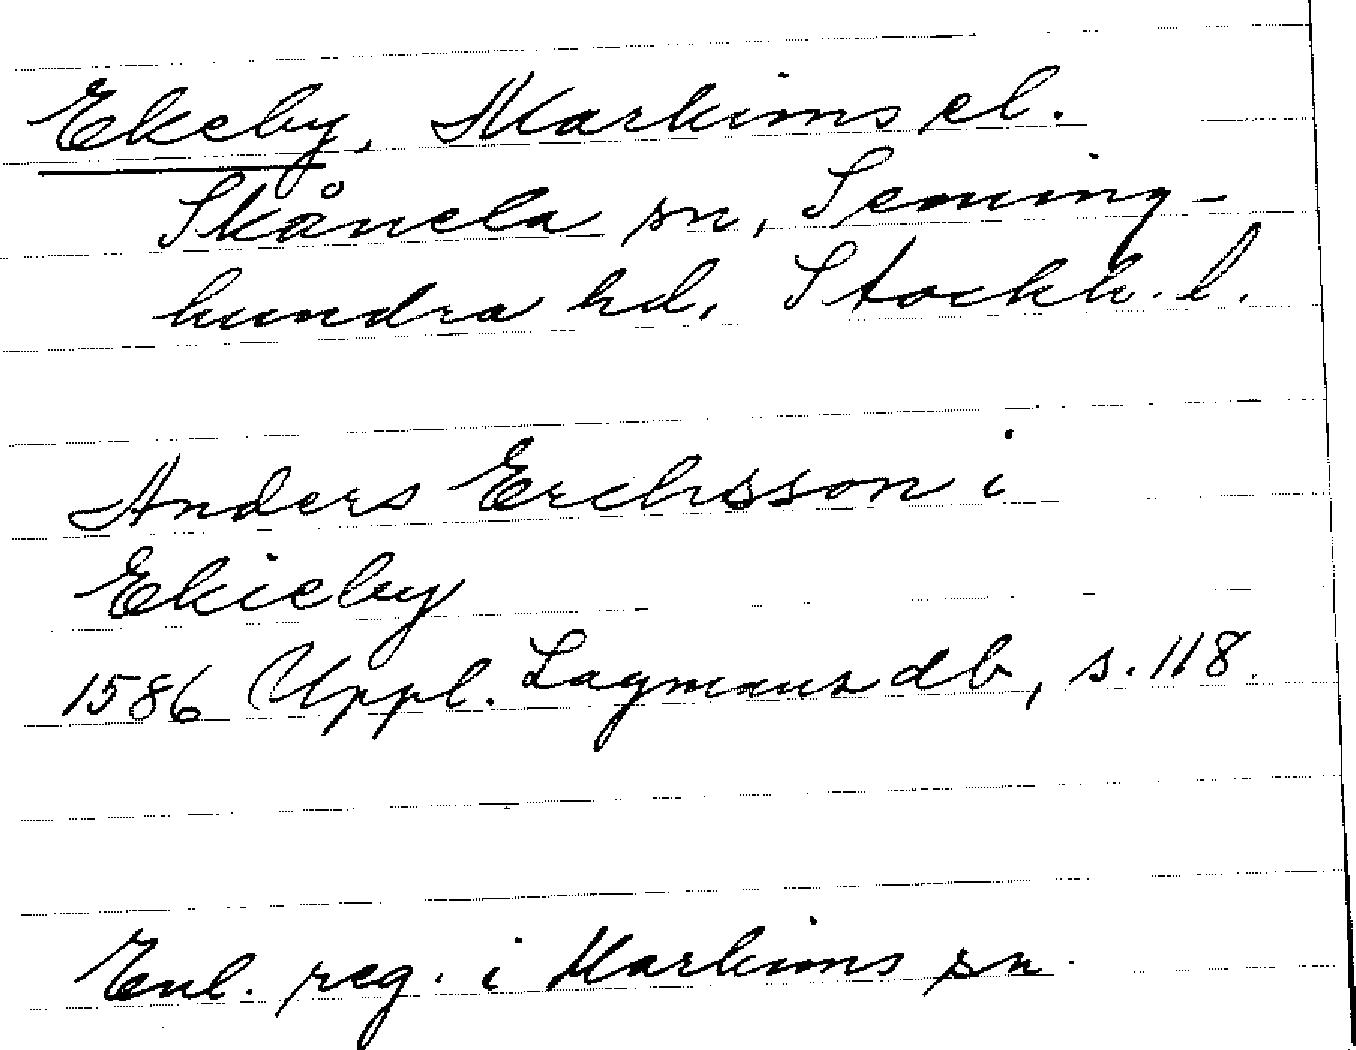 Ekeby, Markims el.
Skånela sn, Seming-
hundra hd, Stockh. l.
Anders Erichsson i
Ekieby
1586 Uppl. Lagmansdb, s. 118.
Enl. reg. i Markims sn.